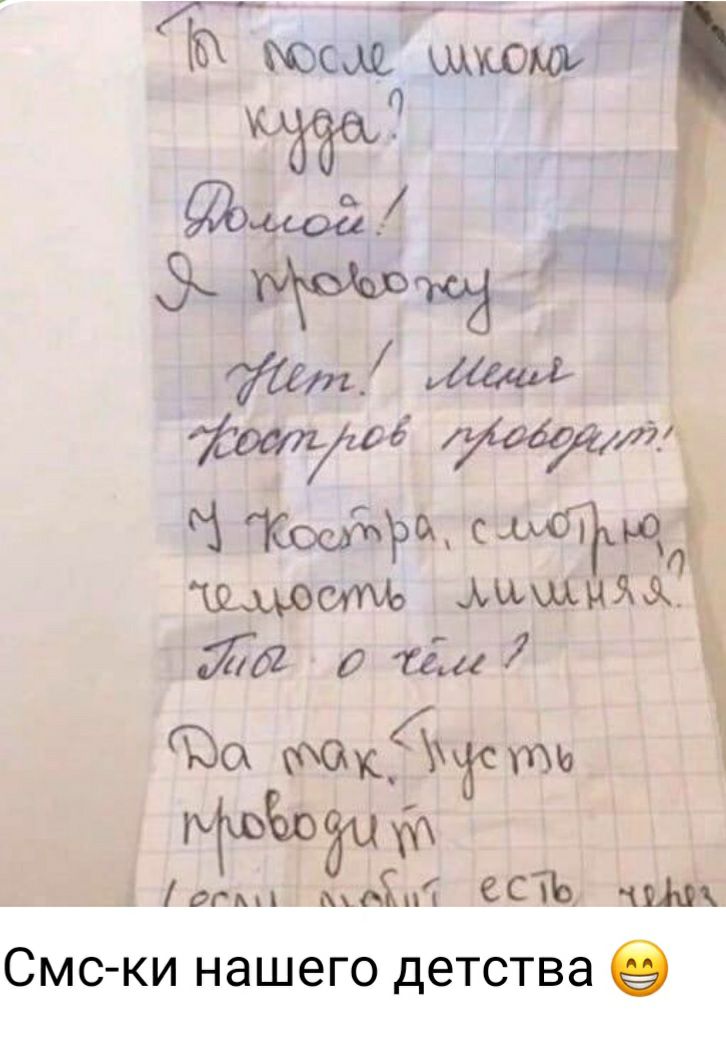 Ты после школы
куда?
Домой!
Я провожу
Нет! Меня
Костров проводит!
У Костра, смотрю,
челюсть лишняя?
Ты о чём?
Да так. Пусть
проводит
(если любит есть через
Смс-ки нашего детства 😁